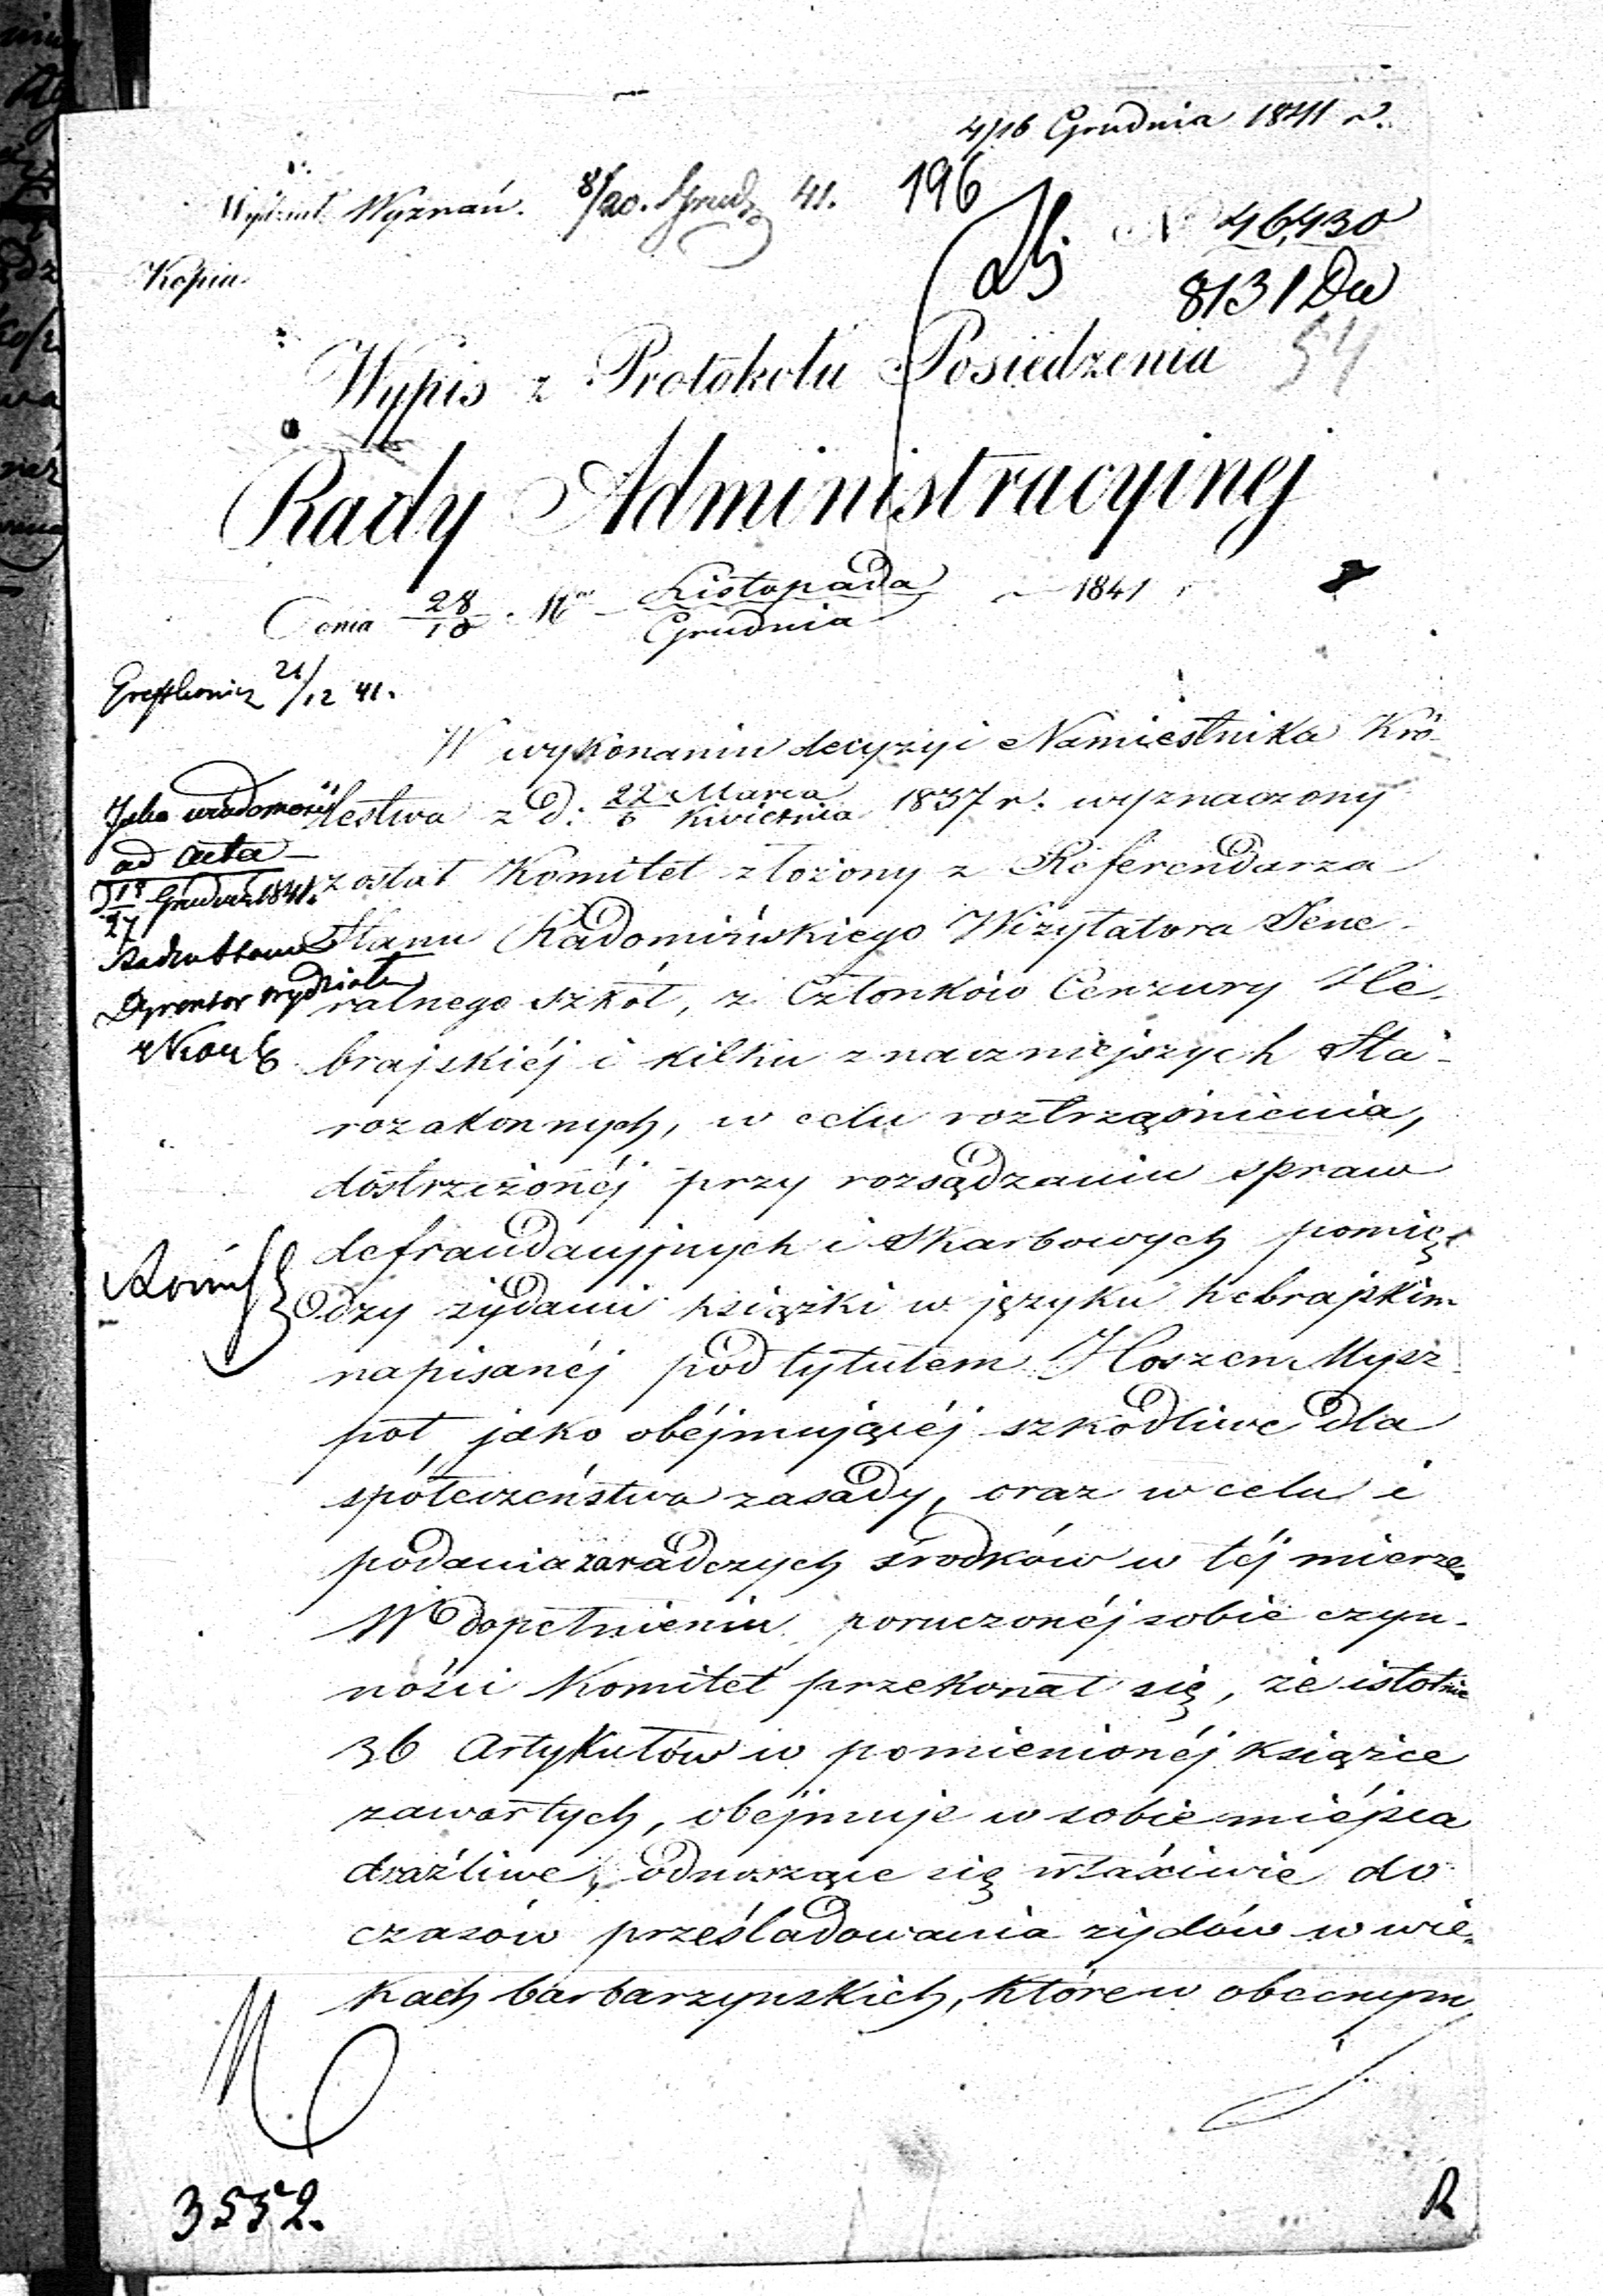 4/16 Grudnia 1841 r.
Wydział Wyznań. 8/20. Grud. 41. 196
N 46,430
Kopia
8131 Dw
54
Wypis z Protokółu Posiedzenia
Rady Administracyinej
Dnia 28/10 Listopada/Grudnia 1841 r
21/12 41.
W wykonaniu decyzyi Namiestnika Kró-
lestwa z d. 22 Marca/3 Kwietnia 1837 r. wyznaczony
został Komitet złożony z Referendarza
Stanu Radomińskiego Wizytatora Jene-
ralnego Szkół, z Członków Cenzury He-
brajskiéj i kilku znaczniejszych Sta-
rozakonnych, w celu roztrząśnienia,
dostrzeżonéj przy rozsądzaniu spraw
defraudacyjnych i Skarbowych pomię-
dzy żydami książki w języku hebrajskim
napisanéj pod tytułem Hoszen Mysz-
pot, jako obéjmującéj szkodliwe dla
społeczeństwa zasady, oraz w celu i
podania zaradczych środków w téj mierze.
W dopełnieniu poruczonéj sobie czyn-
ności Komitet przekonał się, że istotnie
36 Artykułów w pomienionéj książce
zawartych, obéjmuje w sobie miéjsca
draźliwe, odnoszące się właściwie do
czasów prześladowania żydów w wie-
kach barbarzynskich, które w obecnym
Jako wiadomość
ad acta
Grudnia 1841.
Radca Stanu
Dyrektor Wydziału
3552.
R